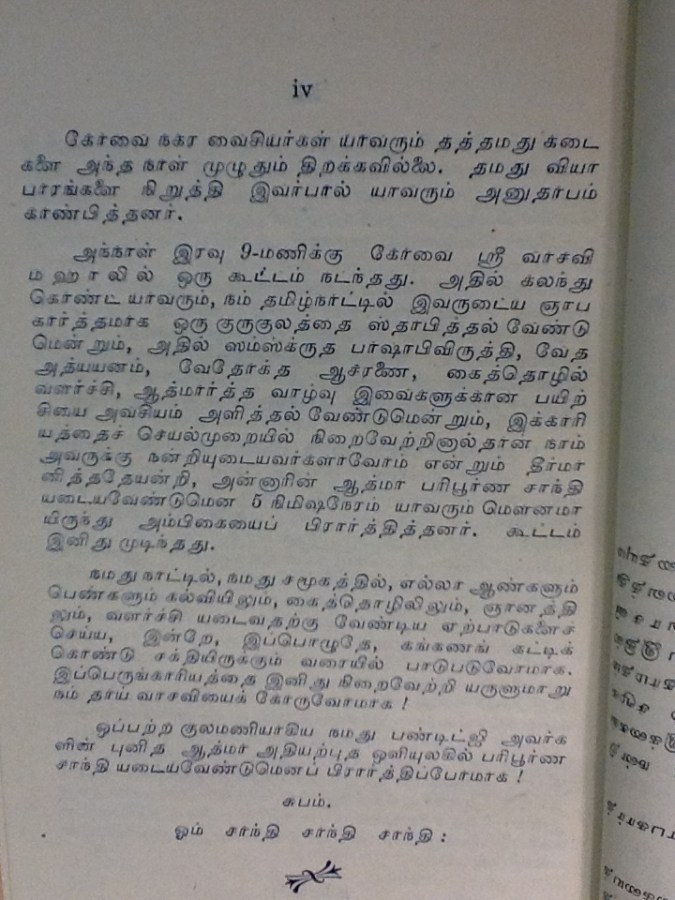 iv
கோவை நகர வைசியர்கள் யாவரும் தத்தமது கடை
களை அந்த நாள் முழுதும் திறக்கவில்லை. தமது வியா
பாரங்களை நிறுத்தி இவர்பால் யாவரும் அனுதாபம்
காண்பித்தனர்.
அந்நாள் இரவு 9-மணிக்கு கோவை ஸ்ரீ வாசவி
மஹாலில் ஒரு கூட்டம் நடந்தது. அதில் கலந்து
கொண்ட யாவரும், நம் தமிழ்நாட்டில் இவருடைய ஞாப
கார்த்தமாக ஒரு குருகுலத்தை ஸ்தாபித்தல் வேண்டு
மென்றும், அதில் ஸம்ஸ்க்ருத பாஷாபிவிருத்தி, வேத
அத்யயனம், வேதோக்த ஆச்ரணை, கைத்தொழில்
வளர்ச்சி, ஆத்மார்த்த வாழ்வு இவைகளுக்கான பயிற்
சியை அவசியம் அளித்தல் வேண்டுமென்றும், இக்காரி
யத்தைச் செயல்முறையில் நிறைவேற்றினால்தான் நாம்
அவருக்கு நன்றியுடையவர்களாவோம் என்றும் தீர்மா
னித்ததேயன்றி, அன்னாரின் ஆத்மா பரிபூர்ண சாந்தி
யடையவேண்டுமென 5 நிமிஷநேரம் யாவரும் மௌனமா
யிருந்து அம்பிகையைப் பிரார்த்தித்தனர். கூட்டம்
இனிது முடிந்தது.
நமது நாட்டில், நமது சமூகத்தில், எல்லா ஆண்களும்
பெண்களும் கல்வியிலும், கைத்தொழிலிலும், ஞானத்தி
லும், வளர்ச்சி யடைவதற்கு வேண்டிய ஏற்பாடுகளைச்
செய்ய, இன்றே, இப்பொழுதே, கங்கணங் கட்டிக்
கொண்டு சக்தியிருக்கும் வரையில் பாடுபடுவோமாக.
இப்பெருங்காரியத்தை இனிது நிறைவேற்றி யருளுமாறு
நம் தாய் வாசவியைக் கோருவோமாக !
ஒப்பற்ற குலமணியாகிய நமது பண்டிட்ஜி அவர்க
ளின் புனித ஆத்மா அதியற்புத ஒளியுலகில் பரிபூர்ண
சாந்தி யடையவேண்டுமெனப் பிரார்த்திப்போமாக !
சுபம்.
ஓம் சாந்தி சாந்தி சாந்தி :